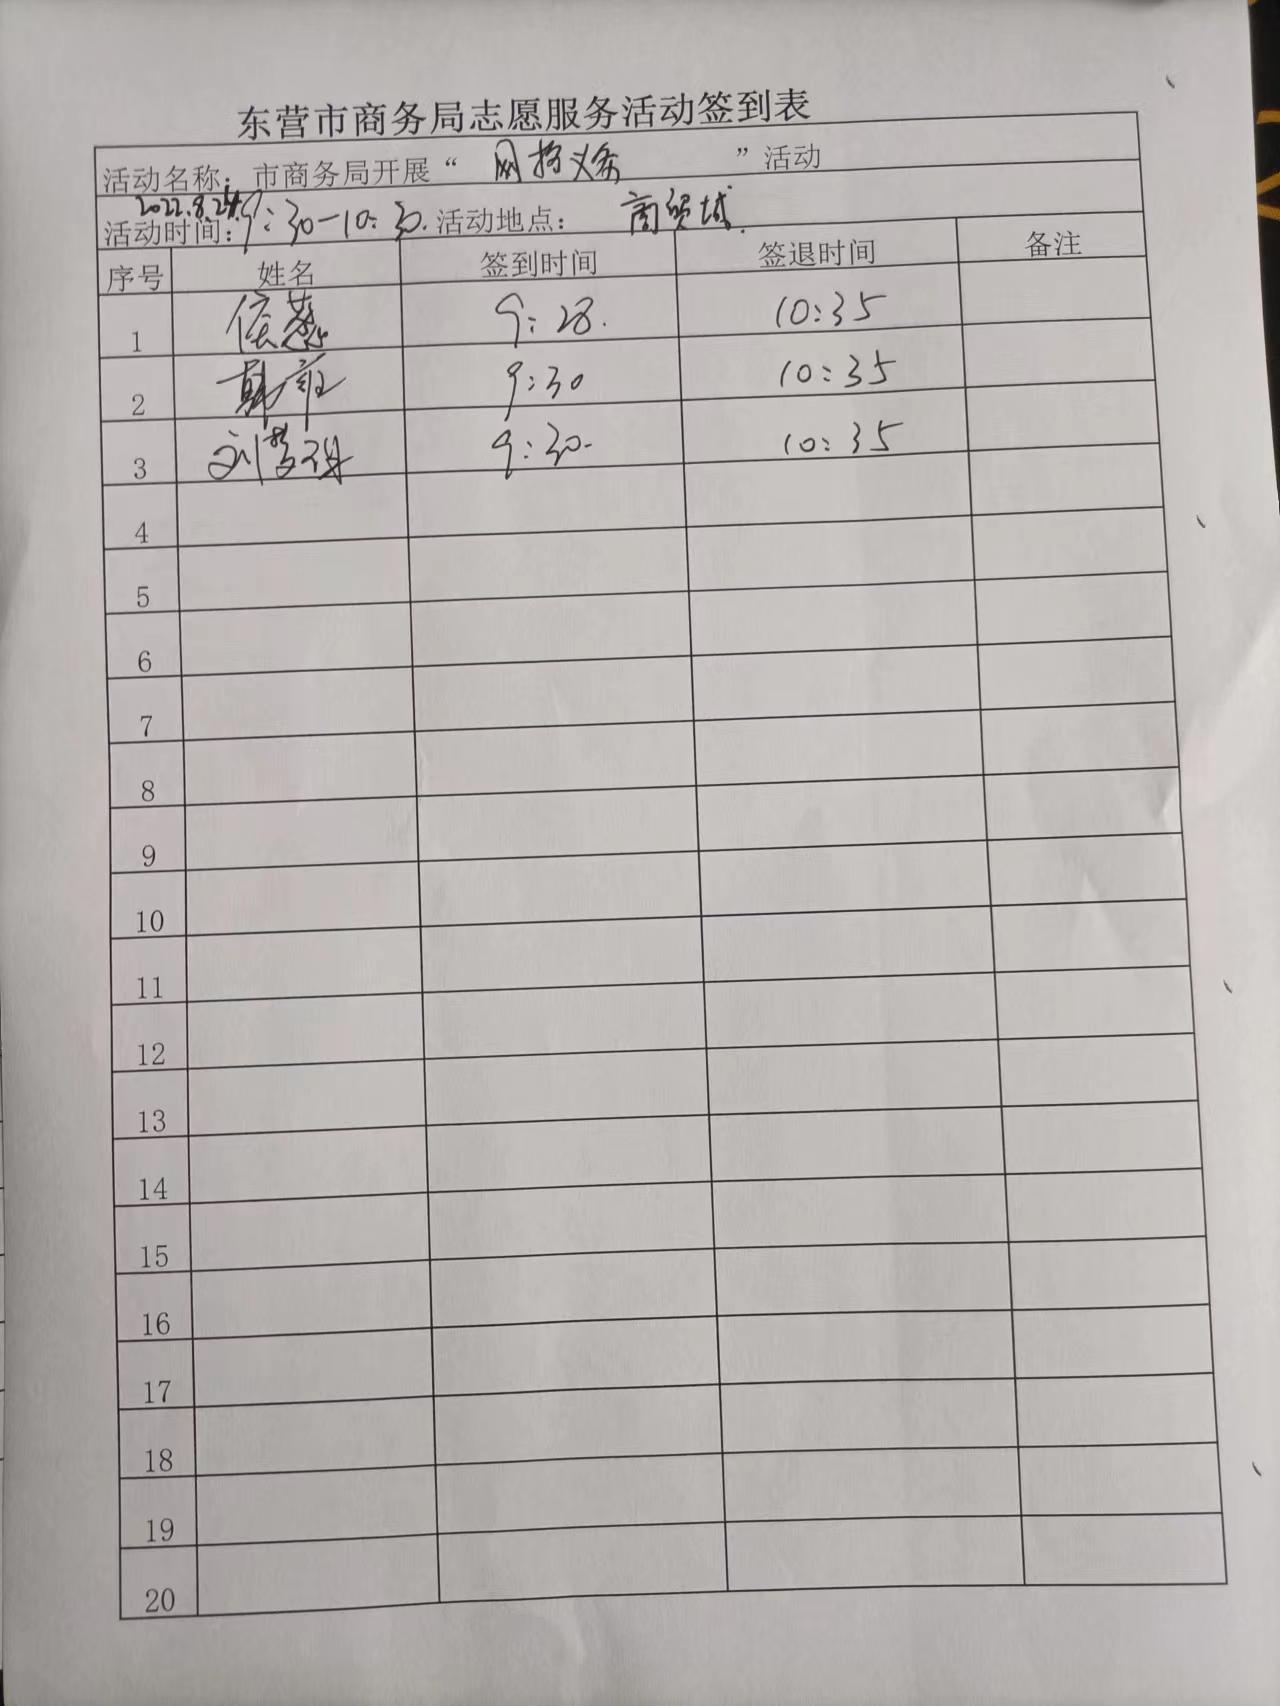 东营市商务局志愿服务活动签到表
活动名称：市商务局开展“ 网格义务 ”活动
2022.8.24.
活动时间：9:30-10:30. 活动地点： 商贸城.
序号 姓名 签到时间 签退时间 备注
1 9:28. 10:35
2 9:30 10:35
3 刘梦 9:30. 10:35
4
5
6
7
8
9
10
11
12
13
14
15
16
17
18
19
20